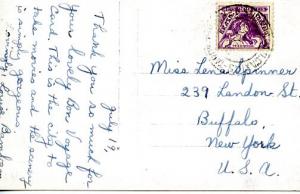 July 19,
Thank you so much for
your lovely Bon Voyage
Card. This is the city to
take movies and the scenery
is simply gorgeous.
Miss Lena Spinner
239 Landon St.
Buffalo,
New York
U. S. A.